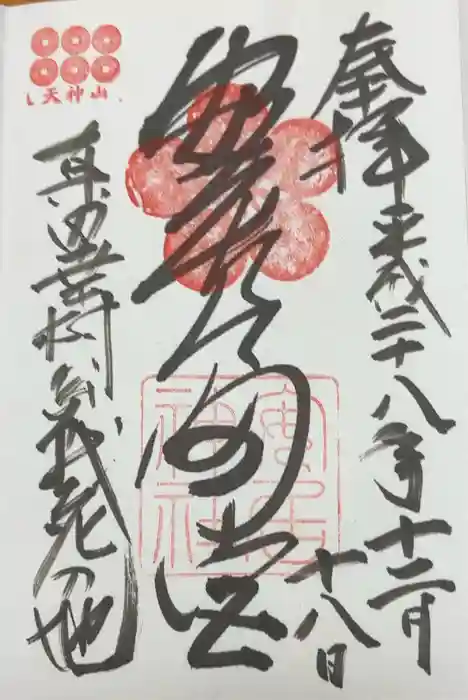 奉拝 平成二十八年十二月
十八日
安居天満宮
真田幸村公戦死の地
天神山
安居
神社